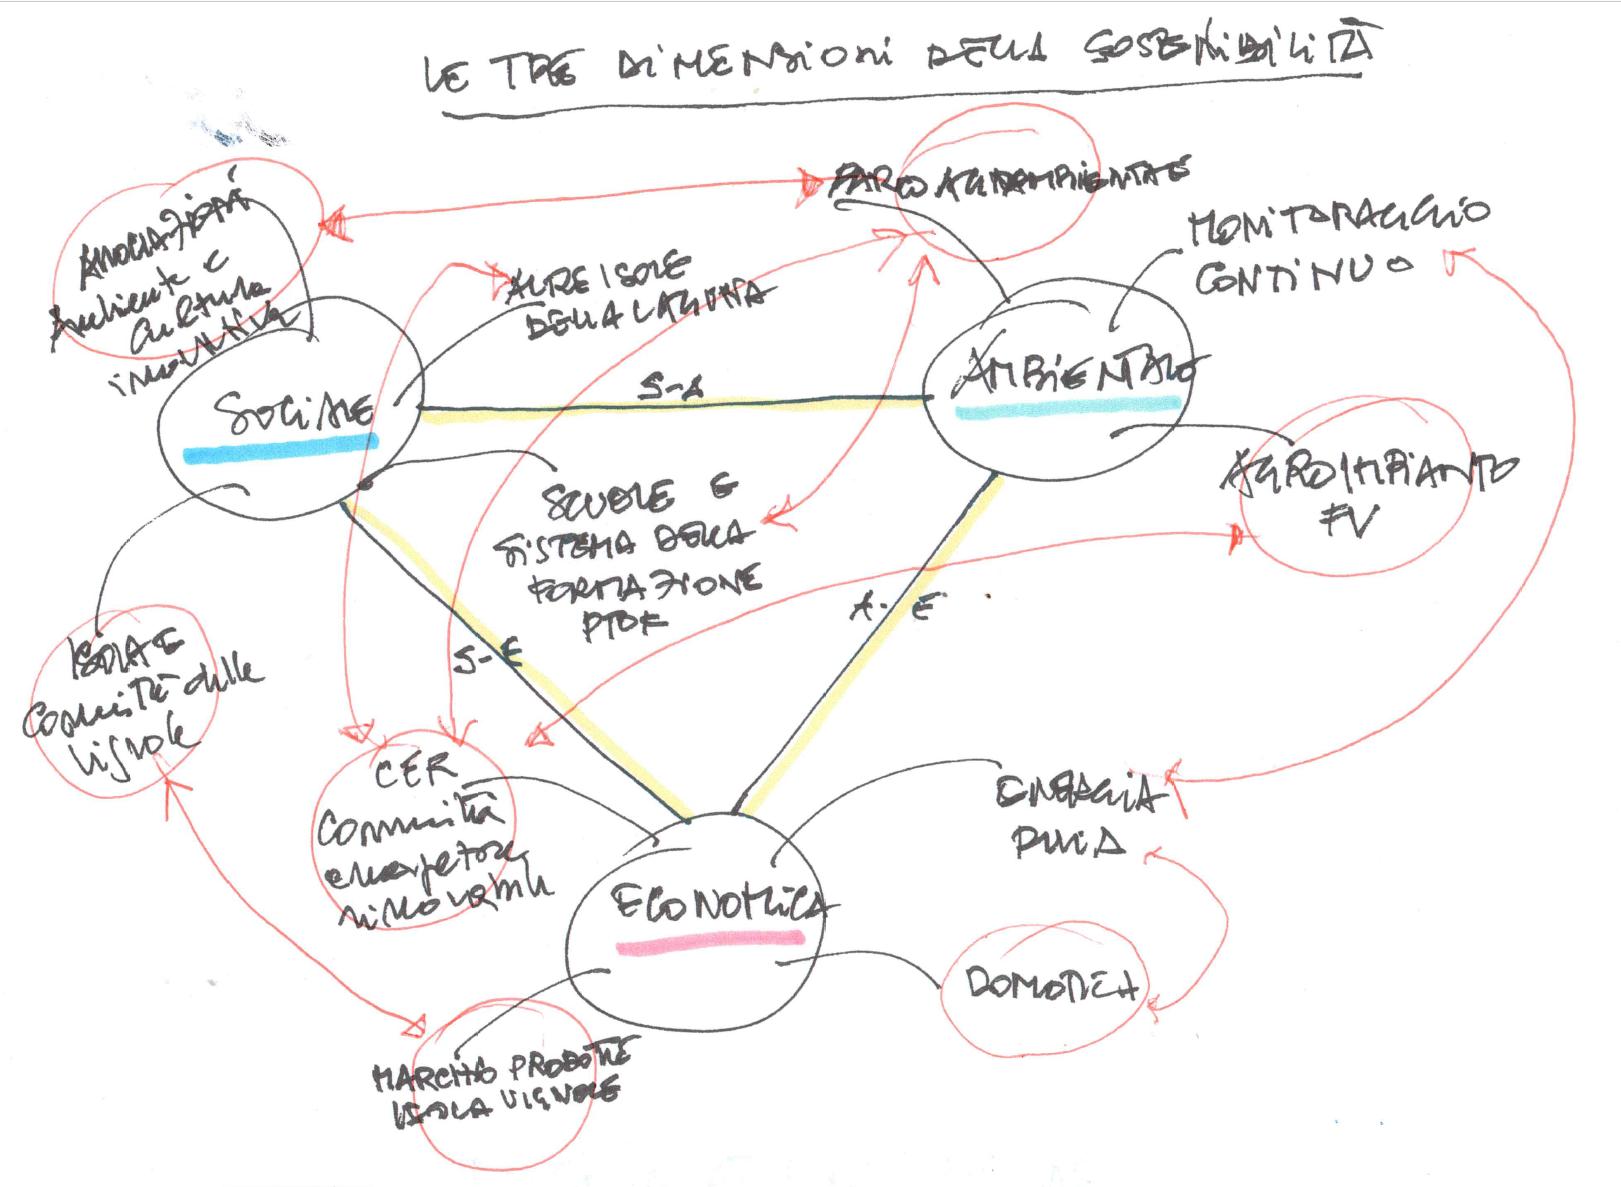 LE TRE DIMENSIONI DELLA SOSTENIBILITÀ
PARCO AGROAMBIENTALE
ASSOCIAZIONI
Ambiente e
Cultura
innovativa
MONITORAGGIO
CONTINUO
ALTRE ISOLE
DELLA LAGUNA
SOCIALE
S-A
AMBIENTALE
SCUOLE E
SISTEMA DELLA
FORMAZIONE
AGROIMPIANTO
FV
A-E
S-E
ISOLA E
Comunità delle
Vignole
CER
Comunità
energetica
rinnovabili
ENERGIA
PULITA
ECONOMICA
DOMOTICA
MARCHIO PRODOTTI
ISOLA VIGNOLE